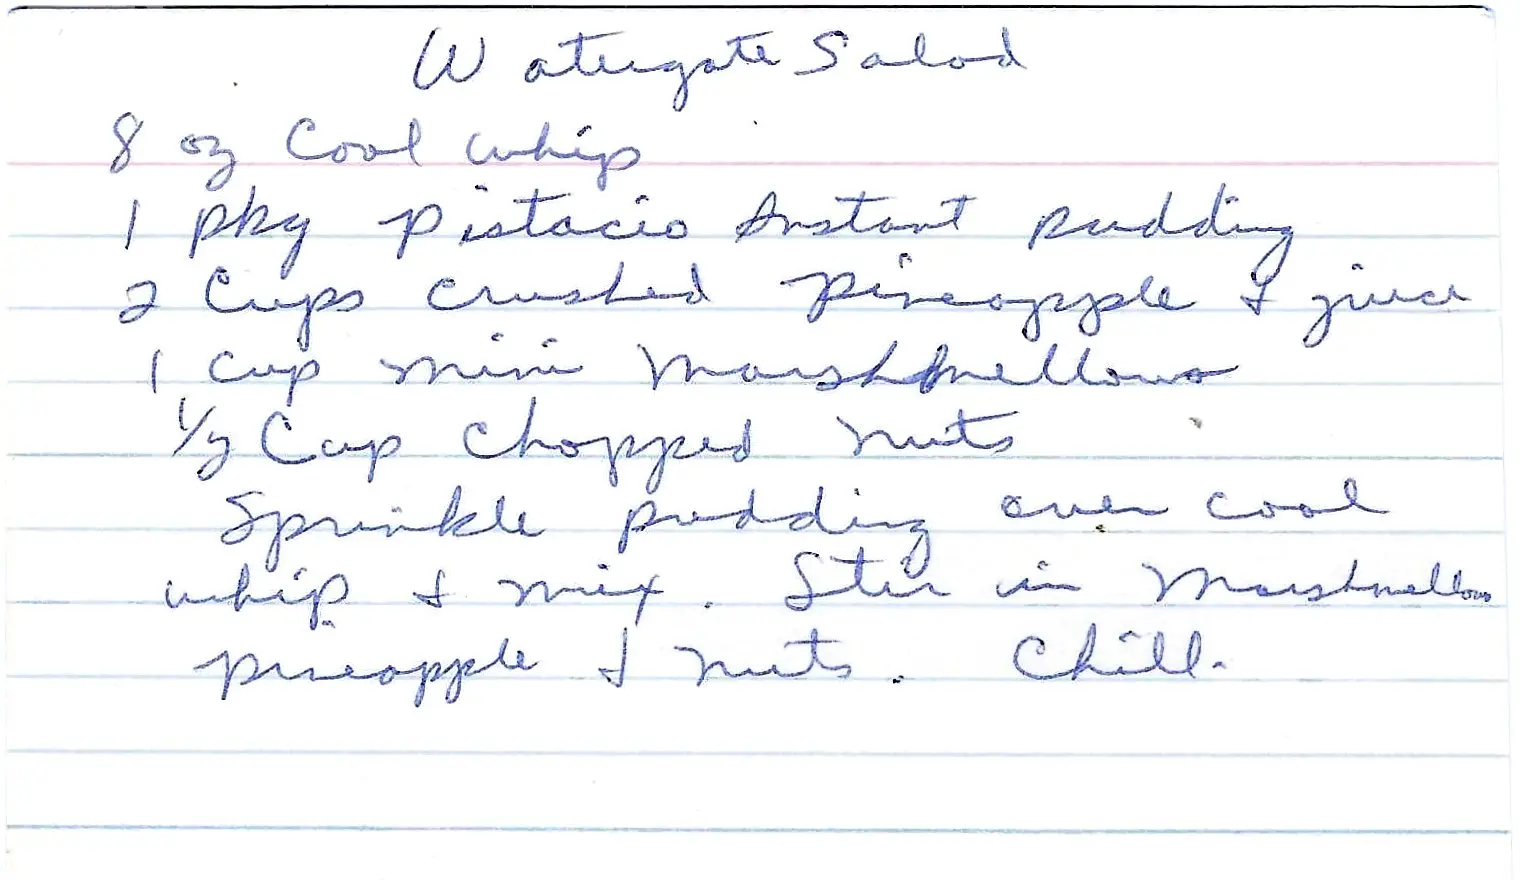 Watergate Salad
8 oz Cool whip
1 pkg Pistacio Instant pudding
2 Cups crushed Pineapple & juice
1 cup mini Marshmellows
1/2 Cup Chopped nuts
Sprinkle pudding over cool
whip & mix. Stir in Marshmellows
pineapple & nuts. Chill.